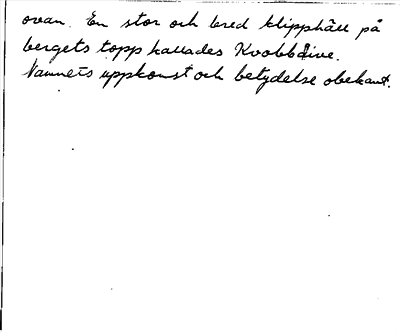 ovan. En stor och bred klipphäll på
bergets topp kallades Kvobbdive.
Namnets uppkomst och betydelse obekant.